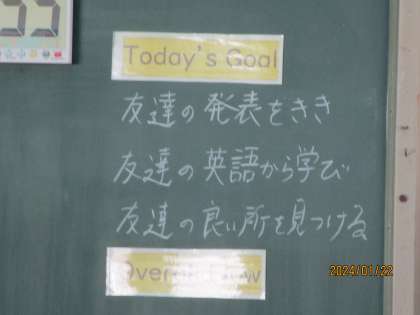 Today's Goal
友達の発表をきき
友達の英語から学び
友達の良い所を見つける
2024/01/22